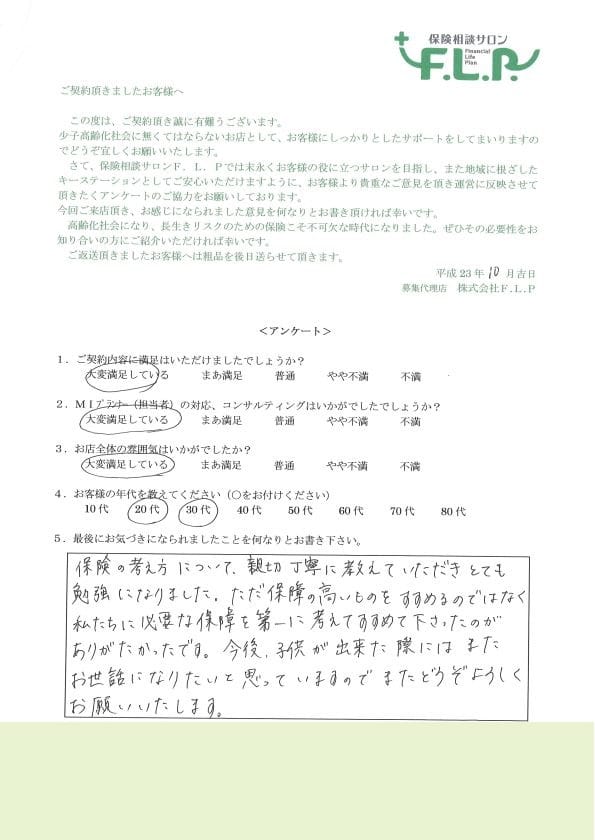 保険相談サロン
F.L.P.
Financial
Life
Plan
ご契約頂きましたお客様へ
この度は、ご契約頂き誠に有難うございます。
少子高齢化社会に無くてはならないお店として、お客様にしっかりとしたサポートをしてまいりますの
でどうぞ宜しくお願いいたします。
さて、保険相談サロンF．L．P では末永くお客様の役に立つサロンを目指し、また地域に根ざした
キーステーションとしてご安心いただけますように、お客様より貴重なご意見を頂き運営に反映させて
頂きたくアンケートのご協力をお願いしております。
今回ご来店頂き、お感じになられました意見を何なりとお書き頂ければ幸いです。
高齢化社会になり、長生きリスクのための保険こそ不可欠な時代になりました。ぜひその必要性をお
知り合いの方にご紹介いただければ幸いです。
ご返送頂きましたお客様へは粗品を後日送らせて頂きます。
平成23年10月吉日
募集代理店　株式会社F．L．P
＜アンケート＞
1．ご契約内容に満足はいただけましたでしょうか？
大変満足している　まあ満足　普通　やや不満　不満
2．MIプランナー（担当者）の対応、コンサルティングはいかがでしたでしょうか？
大変満足している　まあ満足　普通　やや不満　不満
3．お店全体の雰囲気はいかがでしたか？
大変満足している　まあ満足　普通　やや不満　不満
4．お客様の年代を教えてください（○をお付けください）
10代　20代　30代　40代　50代　60代　70代　80代
5．最後にお気づきになられましたことを何なりとお書き下さい。
保険の考え方について、親切丁寧に教えていただきとても
勉強になりました。ただ保障の高いものをすすめるのではなく
私たちに必要な保障を第一に考えてすすめて下さったのが
ありがたかったです。今後、子供が出来た際にはまた
お世話になりたいと思っていますのでまたどうぞよろしく
お願いいたします。